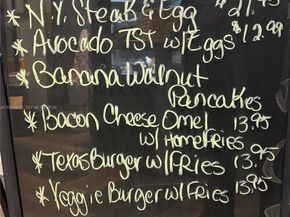 * N.Y. Steak & Egg $21.95
* Avocado TST w/ Eggs $12.99
* Banana Walnut
Pancakes
* Bacon Cheese Omel 13.95
w/ Homefries
* Texas Burger w/ Fries 13.95
* Veggie Burger w/ Fries 13.95